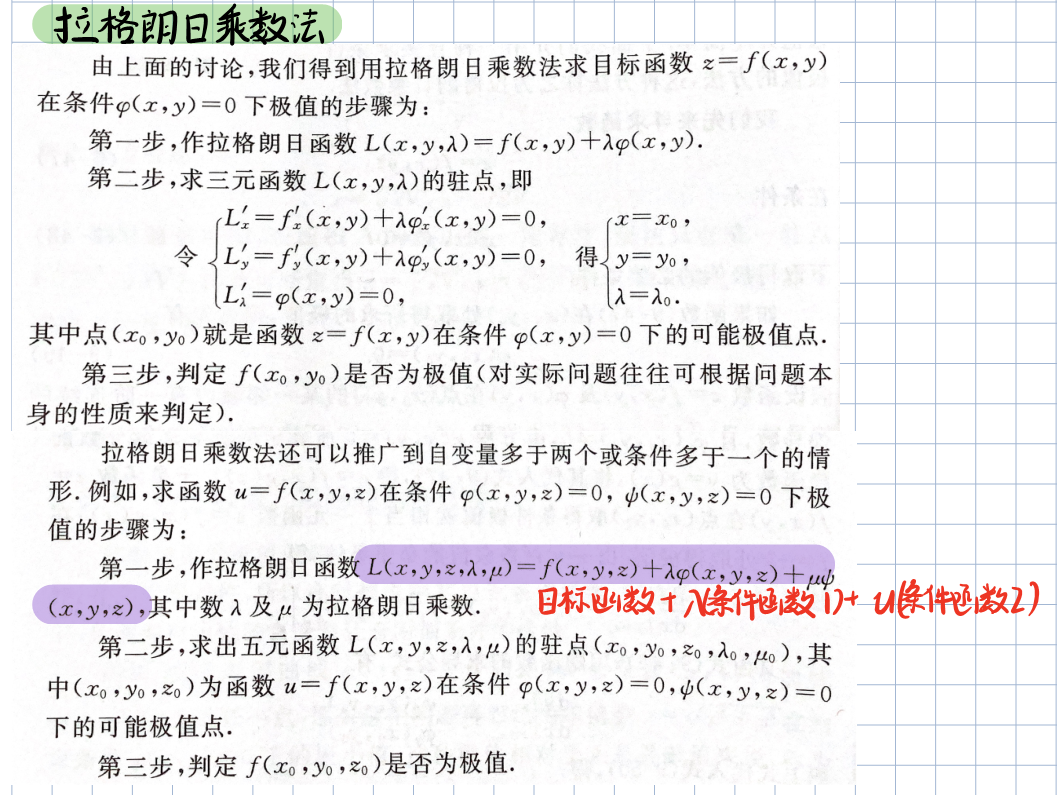 拉格朗日乘数法
由上面的讨论,我们得到用拉格朗日乘数法求目标函数 z=f(x,y)
在条件φ(x,y)=0 下极值的步骤为:
第一步,作拉格朗日函数 L(x,y,λ)=f(x,y)+λφ(x,y).
第二步,求三元函数 L(x,y,λ)的驻点,即
L′ₓ=f′ₓ(x,y)+λφ′ₓ(x,y)=0, x=x₀,
令 L′y=f′y(x,y)+λφ′y(x,y)=0, 得 y=y₀,
L′λ=φ(x,y)=0, λ=λ₀.
其中点(x₀,y₀)就是函数 z=f(x,y)在条件 φ(x,y)=0 下的可能极值点.
第三步,判定 f(x₀,y₀)是否为极值(对实际问题往往可根据问题本
身的性质来判定).
拉格朗日乘数法还可以推广到自变量多于两个或条件多于一个的情
形.例如,求函数 u=f(x,y,z)在条件 φ(x,y,z)=0, ψ(x,y,z)=0 下极
值的步骤为:
第一步,作拉格朗日函数 L(x,y,z,λ,μ)=f(x,y,z)+λφ(x,y,z)+μψ
(x,y,z),其中数 λ 及 μ 为拉格朗日乘数.
目标函数+λ(条件函数1)+u(条件函数2)
第二步,求出五元函数 L(x,y,z,λ,μ)的驻点(x₀,y₀,z₀,λ₀,μ₀),其
中(x₀,y₀,z₀)为函数 u=f(x,y,z)在条件 φ(x,y,z)=0,ψ(x,y,z)=0
下的可能极值点.
第三步,判定 f(x₀,y₀,z₀)是否为极值.